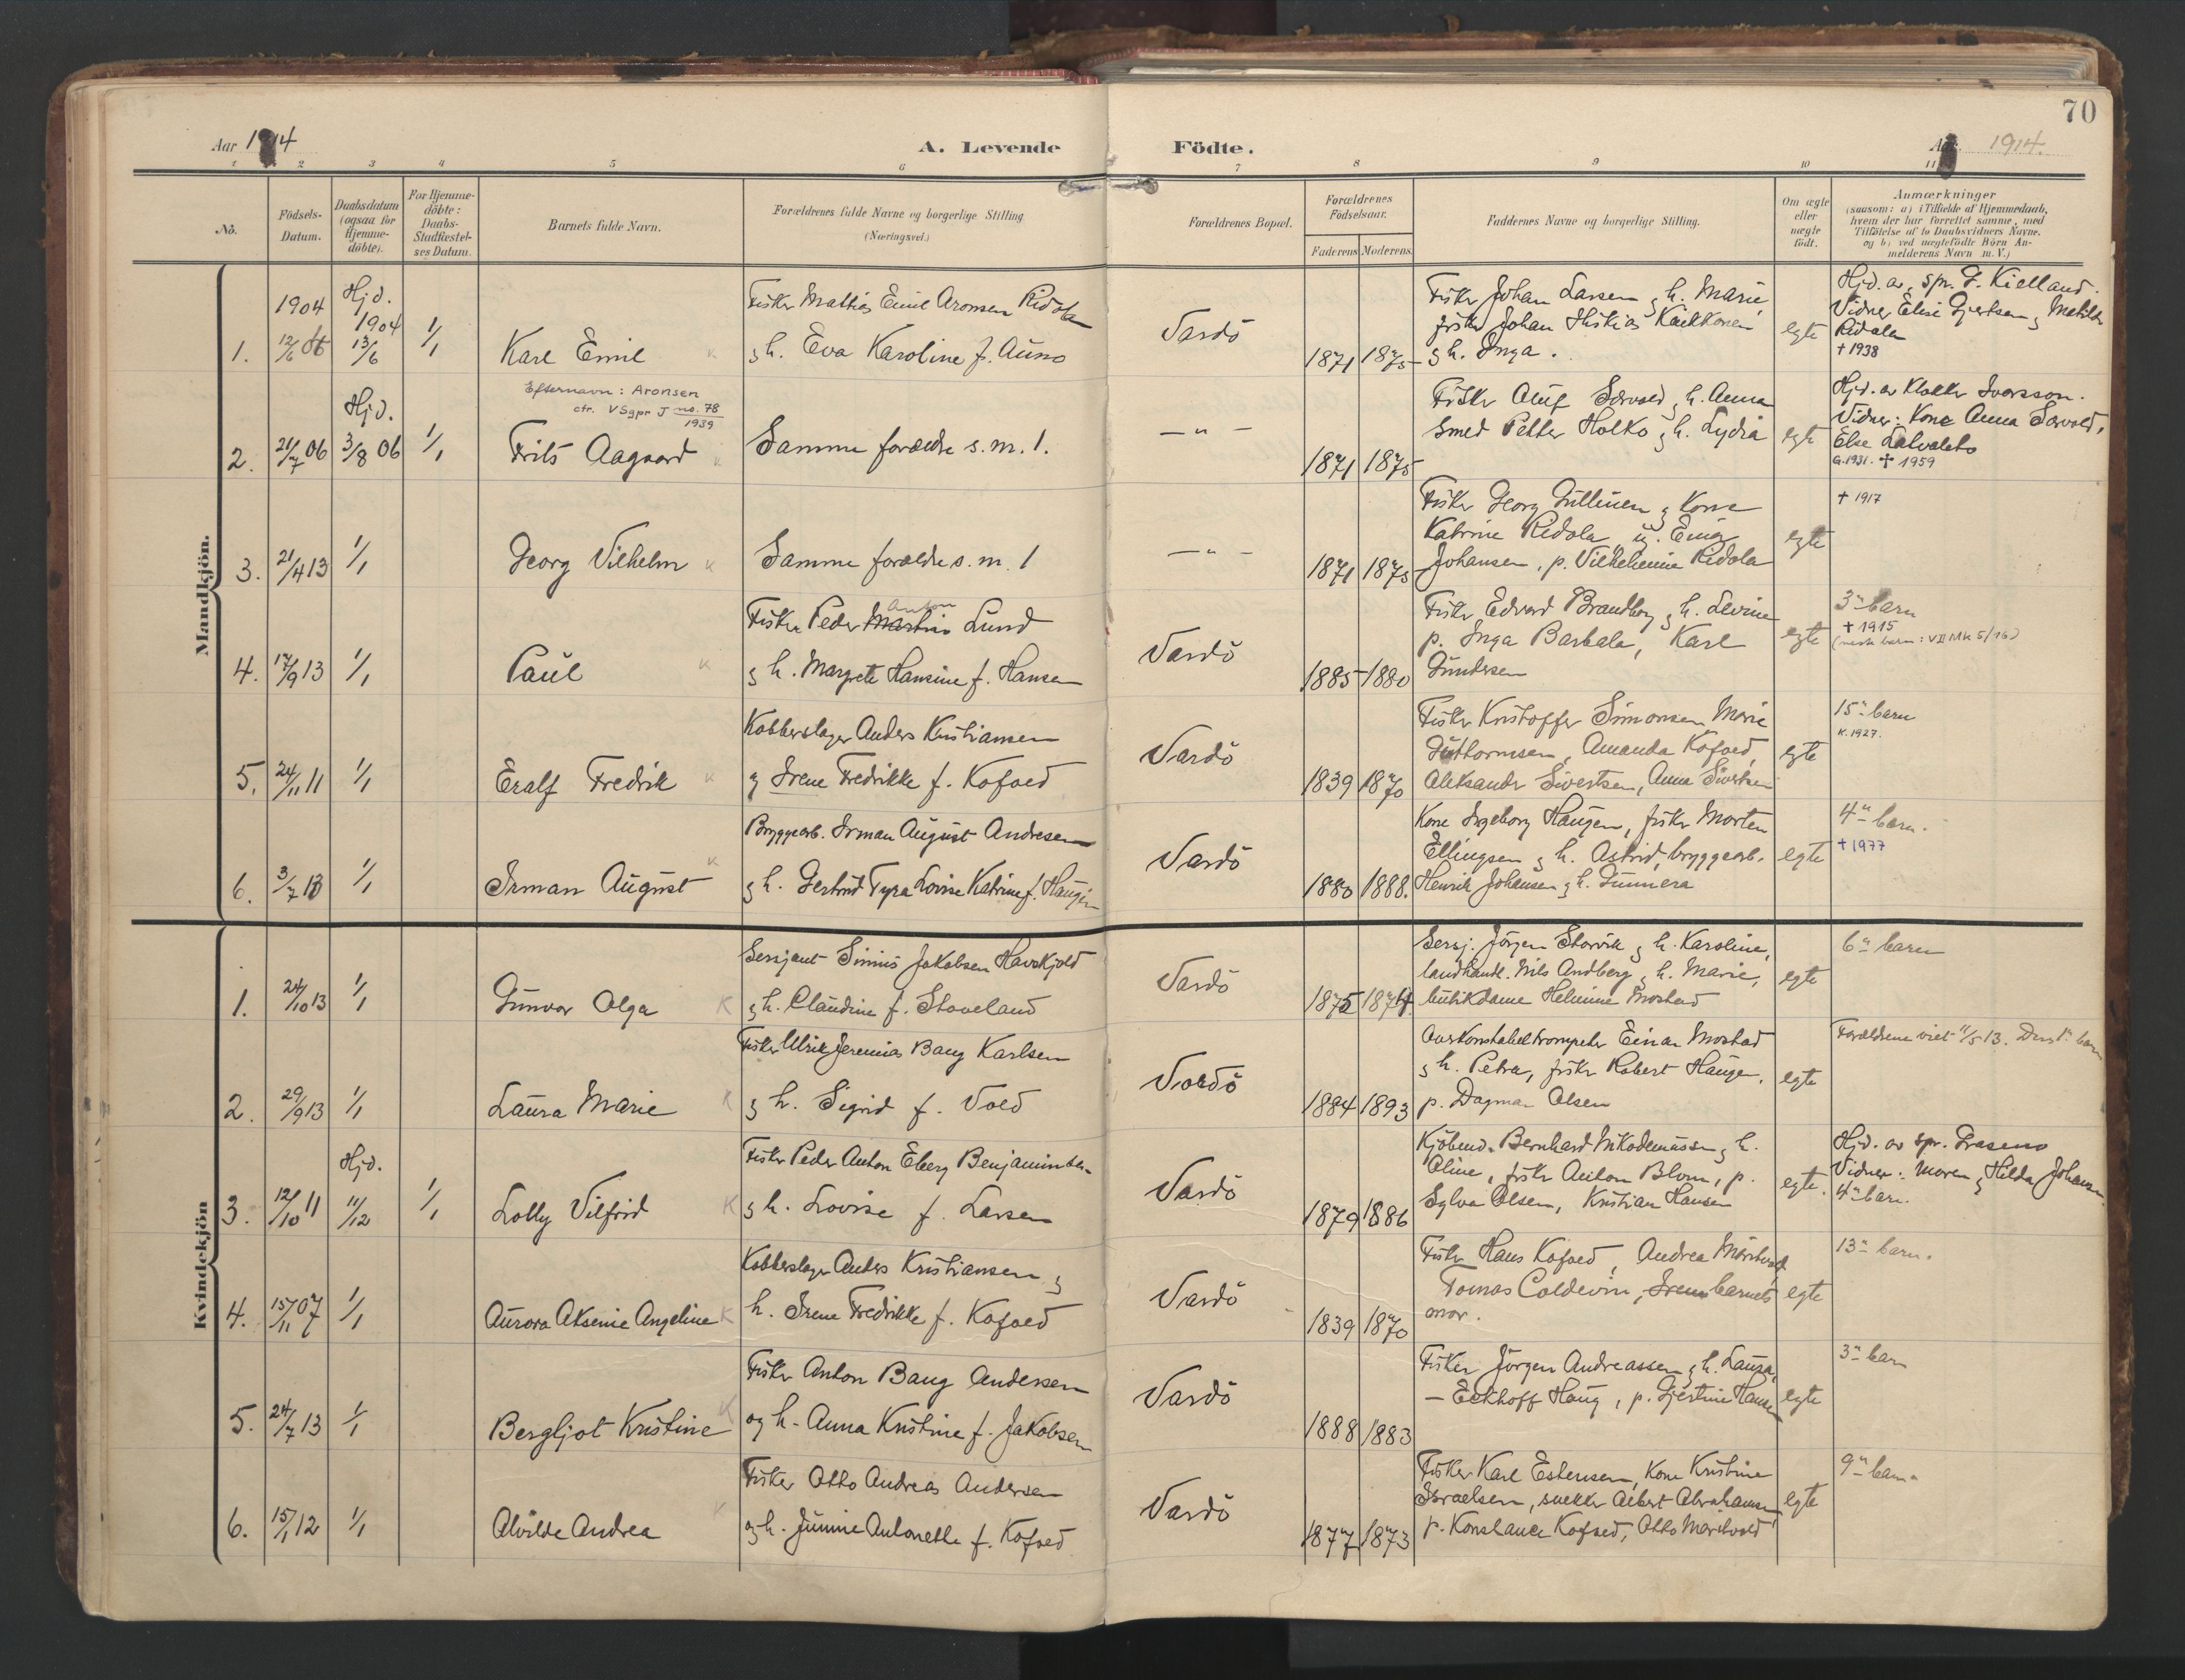 70
Aar 1914
A. Levende Födte.
Aar 1914.
1 2 3 4 5 6 7 8 9 10 11
No.
Födsels-Datum.
Daabsdatum (ogsaa for Hjemme-döbte).
For Hjemme-döbte: Daabs-Stadfestel-ses Datum.
Barnets fulde Navn.
Forældrenes fulde Navne og borgerlige Stilling
(Næringsvei.)
Forældrenes Bopæl.
Forældrenes Födselsaar.
Faderens Moderens
Faddernes Navne og borgerlige Stilling.
Om ægte eller uægte födt.
Anmærkninger
(saasom: a) i Tilfælde af Hjemmedaab,
hvem der har forrettet samme, med
Tilföielse af to Daabsvidners Navne.
og b) ved uægtefödte Börn An-
melderens Navn m. V.)
Mandkjön.
1. 1904 12/6 Hjd. 1904 13/6 1/1 Karl Emil
Fisker Mathias Emil Aronsen Ridola
og h. Eva Karoline f. Auno
Vardö 1871 1875
Fisker Johan Larsen og h. Marie,
fisker Johan Kækkonen
og h. Inga.
egte
Hjd. av spr. G. Kielland.
Vidner Elise Gjertsen og Matilde
Ridola
† 1938
Efternavn: Aronsen
cfr. VSgpr J no. 78
1939
2. 21/7 06 Hjd. 3/8 06 1/1 Frits Aagaard
Samme forældre s. m. 1.
— " — 1871 1875
Fisker Oluf Sørvold og h. Anna
Smed Petter Holko og h. Lydia
egte
Hjd. av Klokker Ivarsson.
Vidner: Kone Anna Sørvold,
Else
G. 1931. † 1959
3. 21/4 13 1/1 Georg Vilhelm
Samme forældre s. m. 1
— " — 1871 1875
Fisker Georg Gullinen og Kone
Katrine Ridola, u. Einar
Johansen, p. Vilhelmine Ridola
egte
† 1917
4. 17/9 13 1/1 Paul
Fisker Peder Martin Anton Lund
og h. Margrete Hansine f. Hansen
Vardö 1885 1880
Fisker Edvard Brandberg og h. Levine
p. Inga Barbala, Karl
Gundersen
egte
3die barn
† 1915
(nesk barn: VII MK 5/16)
5. 24/11 11 1/1 Eralf Fredrik
Kobberslager Anders Kristiansen
og Irene Fredrikke f. Kofoed
Vardö 1839 1870
Fisker Kristoffer Simonsen, Marie
Guttormsen, Amanda Kofoed,
Aleksander Sivertsen, Anna Sivertsen
egte
15de barn
K. 1927.
6. 3/7 13 1/1 Irman August
Bryggearb. Irman August Andresen
og h. Gertrud Tyra Lovise Katrine f. Haugen
Vardö 1880 1888.
Kone Ingeborg Haugen, fisker Morten
Ellingsen og h. Astrid, bryggearb.
Henrik Johansen og h. Gunnera
egte
4de barn.
† 1977
Kvindekjön
1. 24/10 13 1/1 Gunvor Olga
Sersjant Simius Jakobsen Havskjold
og h. Claudine f. Stoveland
Vardö 1875 1874.
Sersj. Jörgen Storvik og h. Karoline,
landhandl. Nils Andberg og h. Marie,
butikdame Helmine Mostad
egte
6te barn
2. 29/9 13 1/1 Laura Marie
Fisker Ulrik Jeremias Bang Karlsen
og h. Sigrid f. Vold
Vardö 1884 1893
Overkonstabel trompeter Einar Mostad
og h. Petra, fisker Robert Haugen,
p. Dagmar Olsen
egte
Forældrene viet 11/5 13. Deres 1ste barn
3. 12/10 11 Hjd. 11/12 1/1 Lolly Vilfrid
Fisker Peder Anton Eberg Benjaminsen
og h. Lovise f. Larsen
Vardö 1879 1886
Kjöbmd. Bernhard Nikodemussen og h.
Oline, fisker Anton Blom, p.
Sylva Olsen, Kristian Hansen
egte.
Hjd. av spr.
Vidner: Moren og Hilda Johansen
4de barn.
4. 15/11 07 1/1 Aurora Aksenie Angeline
Kobberslager Anders Kristiansen og
h. Irene Fredrikke f. Kofoed
Vardö 1839 1870
Fisker Hans Kofoed, Andrea
Tomas Coldevin, Irene barnets
mor.
egte
13de barn.
5. 24/7 13 1/1 Bergljot Kristine
Fisker Anton Bang Andersen
og h. Anna Kristine f. Jakobsen
Vardö 1888 1883
Fisker Jörgen Andreassen og h. Laura,
— Eckhoff Haug, p. Gjertine Hansen
egte
3die barn
6. 15/1 12 1/1 Alvilde Andrea
Fisker Otto Andreas Andersen
og h. Junnie Antonette f. Kofoed
Vardö 1877 1873
Fisker Karl Estensen, Kone Kristine
Israelsen, snekker Albert Abrahamsen
p. Konstance Kofoed, Otto
egte
9de barn